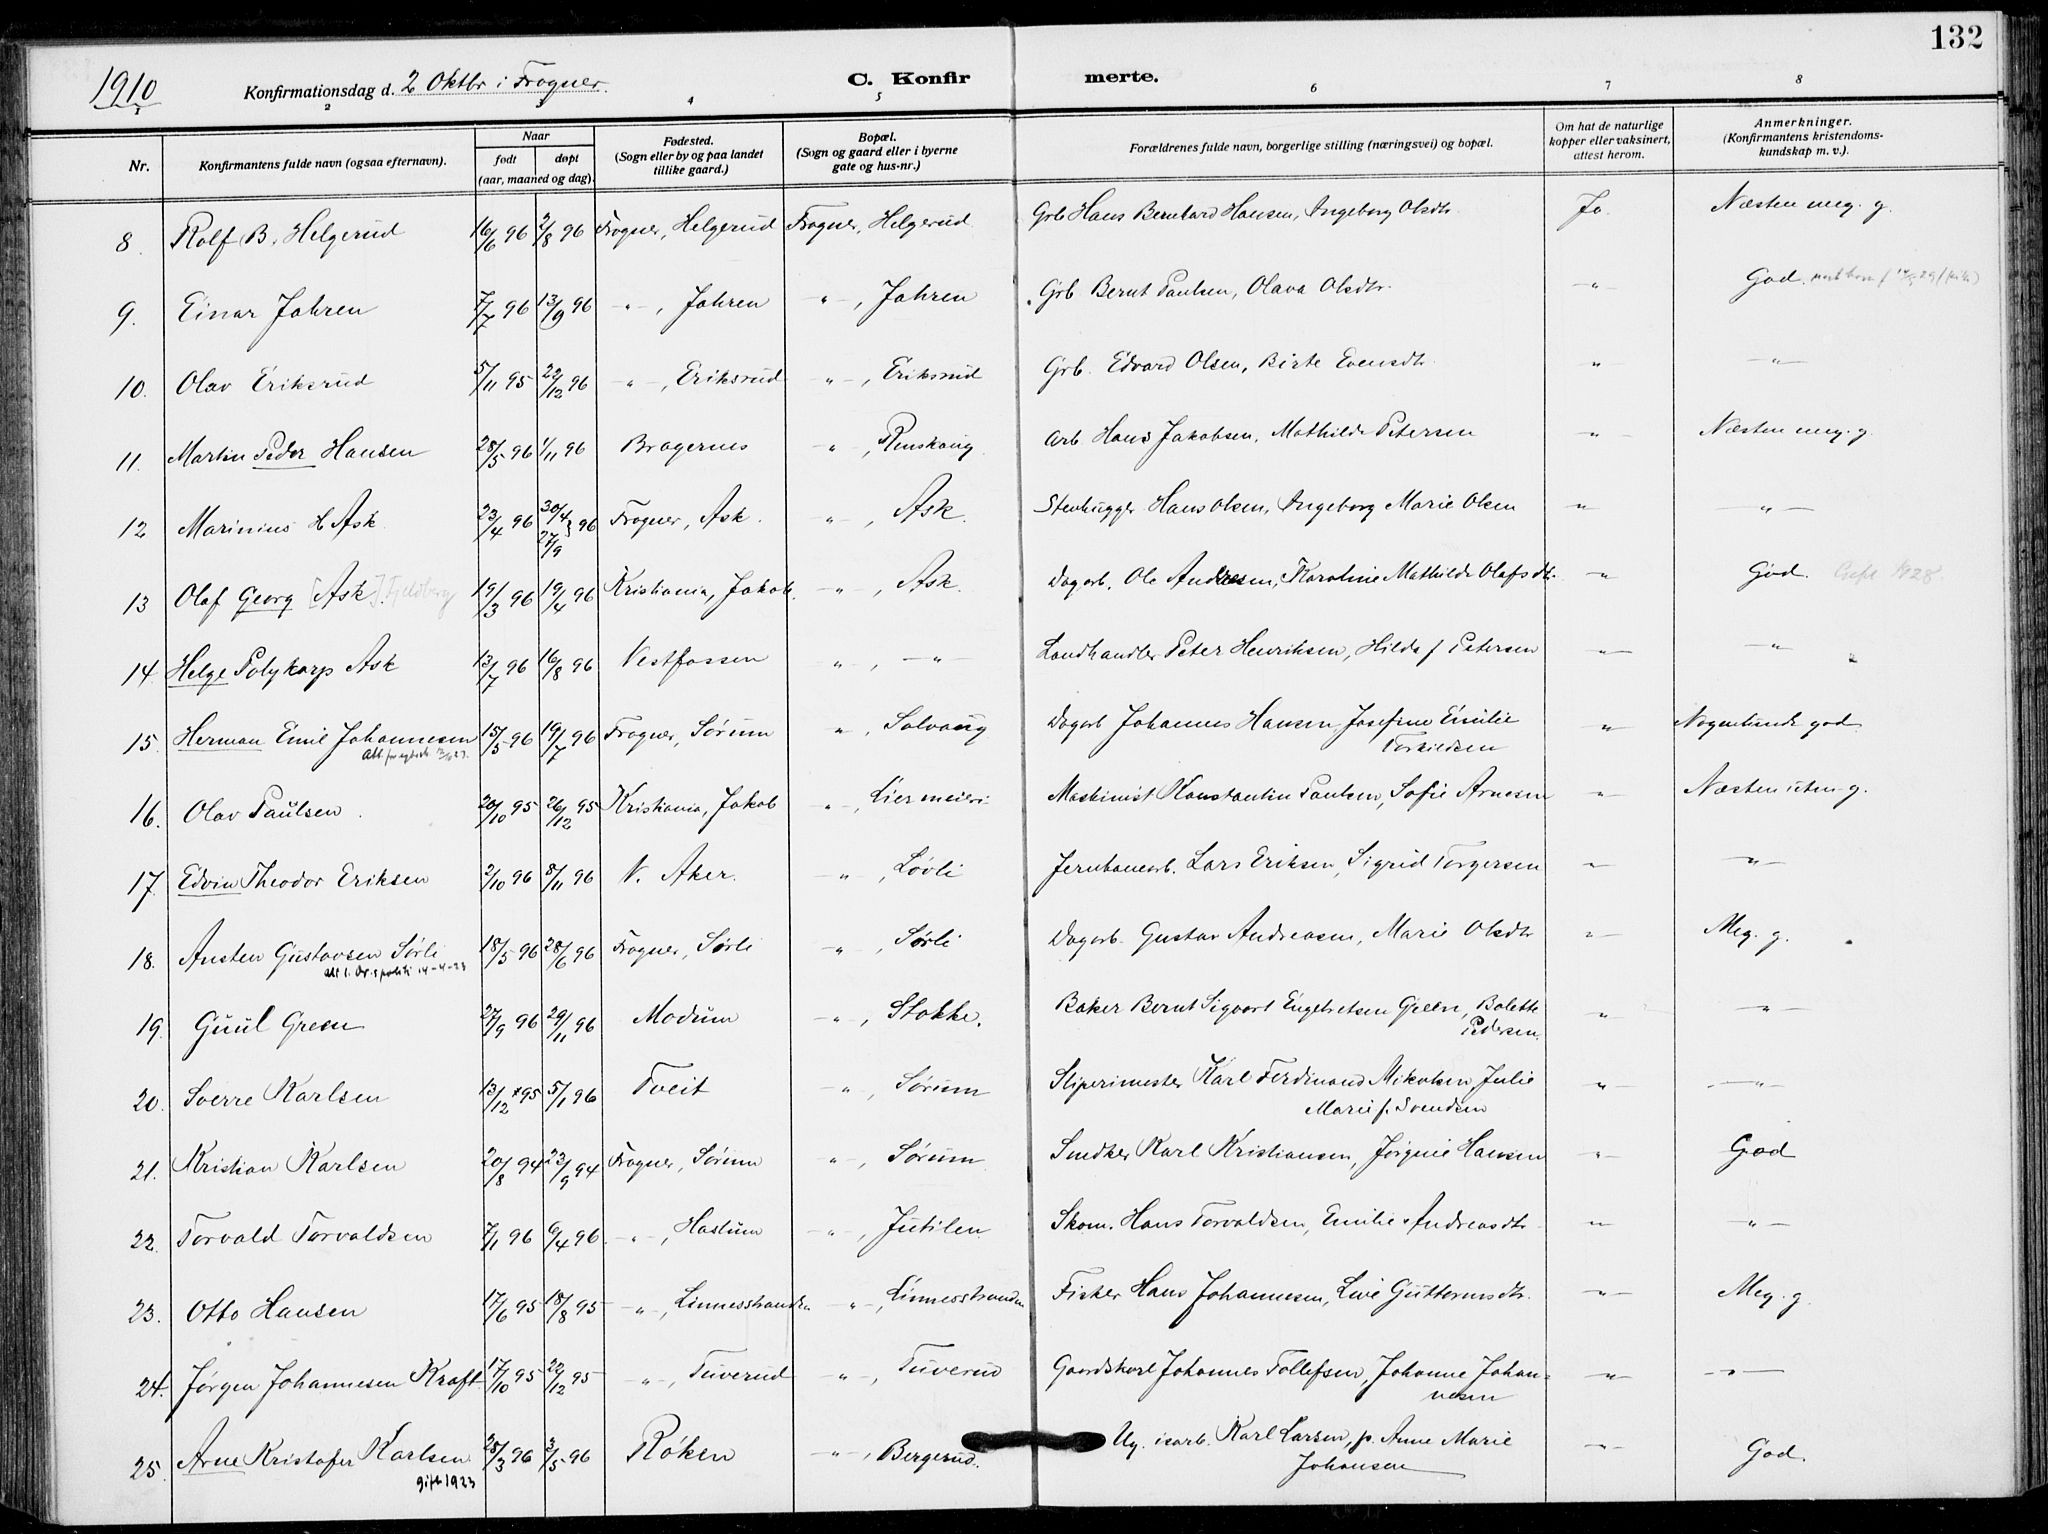 132
1910 Konfirmationsdag d. 2 Oktbr i Frogner. C. Konfirmerte.
1 2 3 4 5 6 7 8
Nr. Konfirmantens fulde navn (ogsaa efternavn). Naar født døpt (aar, maaned og dag). Fødested. (Sogn eller by og paa landet tillike gaard.) Bopæl. (Sogn og gaard eller i byerne gate og hus-nr.) Forældrenes fulde navn, borgerlige stilling (næringsvei) og bopæl. Om hat de naturlige kopper eller vaksinert, attest herom. Anmerkninger. (Konfirmantens kristendomskundskap m. v.).
8. Rolf B. Helgerud 16/6 96 2/8 96 Frogner, Helgerud Frogner, Helgerud Grb Hans Bernhard Hansen, Ingeborg Olsdtr. Ja. Næsten meg. g.
9. Einar Jahren 7/7 96 13/9 96 -"-, Jahren -"-, Jahren Grb. Bernt Paulsen, Olava Olsdtr. -"- God.
10. Olav Eriksrud 5/11 95 22/12 96 -"-, Eriksrud -"-, Eriksrud Grb. Edvard Olsen, Birte Evensdtr. -"- -"-
11. Martin Peder Hansen 28/5 96 1/11 96 Bragernes -"-, Renskaug Arb. Hans Jakobsen, Mathilde Petersen -"- Næsten meg. g.
12 Marinius H Ask 23/4 96 30/4 27/9 96 Frogner, Ask. -"-, Ask. Stenhugger Hans Olsen, Ingeborg Marie Olsen -"- -"-
13 Olaf Georg [Ask] Fjeldberg 19/3 96 19/4 96 Kristiania, Jakob. -"-, Ask. Dagarb. Ole Andresen, Karoline Mathilde Olafsdtr. -"- God. Gift 1928.
14. Helge Polykarp Ask 13/7 96 16/8 96 Vestfossen -"-, -"- Landhandler Peter Henriksen, Hilda f Petersen -"- -"-
15. Herman Emil Johannesen 15/5 96 19/7 96 Frogner, Sørum -"-, Solvang Dagarb Johannes Hansen, Josefine Emilie
Torkildsen -"- Nogenlunde god.
16. Olav Paulsen 20/10 95 26/12 95 Kristiania, Jakob -"-, Liermeieri Maskinist Konstantin Paulsen, Sofie Arnesen -"- Næsten uten g.
17. Edvin Theodor Eriksen 2/10 96 8/11 96 V. Aker. -"-, Løvli Jernbanearb. Lars Eriksen, Sigrid Torgersen -"- -"-
18. Austen Gustavsen Sørli 18/5 96 28/6 96 Frogner, Sørli -"-, Sørli Dagarb. Gustav Andreasen, Marie Olsdtr -"- Meg. g.
14-4-23
19. Guul Green 27/9 96 29/11 96 Modum -"-, Stokke. Baker Bernt Sigvart Engebretsen Green, Bolette
Pedersen. -"- -"-
20. Sverre Karlsen 13/12 95 5/1 96 Tveit -"-, Sørum Sliperimester Karl Ferdinand Mikalsen, Julie
Marie f. Svendsen -"- -"-
21. Kristian Karlsen 20/8 94 23/9 94 Frogner, Sørum -"-, Sørum Snedker Karl Kristiansen, Jørgine Hansen -"- God
22. Torvald Torvaldsen 7/1 96 6/4 96 -"-, Haslum -"-, Jutilen Skom. Hans Torvaldsen, Emilie Andreasdtr -"- -"-
23. Otto Hansen 17/6 95 18/8 95 -"-, Linnesstranden -"-, Linnesstranden Fisker Hans Johannesen, Live Guttormsdtr. -"- Meg. g.
24. Jørgen Johannesen Kraft 17/10 95 22/12 95 -"-, Tuverud -"-, Tuverud Gaardskarl Johannes Tollefsen, Johanne Johan=
nesen -"- -"-
25. Arne Kristofer Karlsen 25/3 96 3/5 96 Røken -"-, Bergerud. Ug. isarb. Karl Larsen, p. Anne Marie
Johansen -"- God.
gift 1923